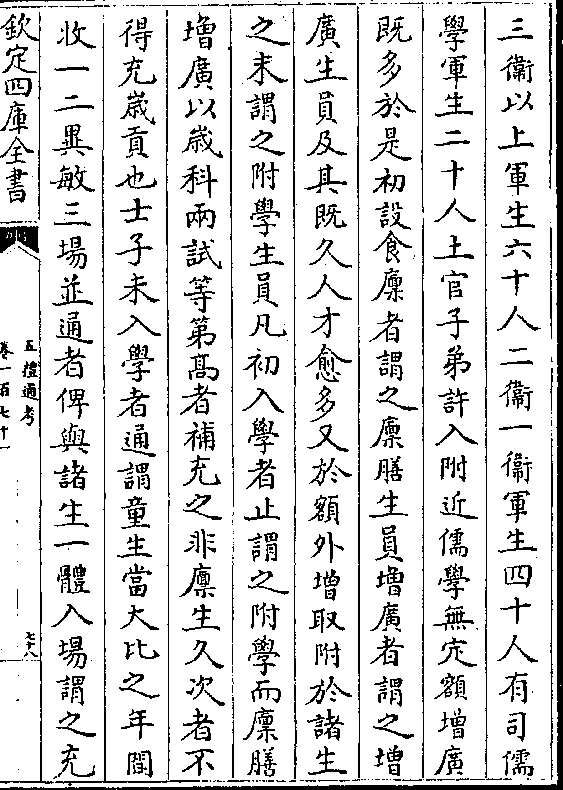 三衛以上軍生六十人二衛一衛軍生四十人有司儒
學軍生二十人土官子弟許入附近儒學無定額增廣
既多於是初設食廩者謂之廩膳生員增廣者謂之增
廣生員及其既久人才愈多又於額外增取附於諸生
之末謂之附學生員凡初入學者止謂之附學而廩膳
增廣以歳科兩試等第髙者補充之非廩生久次者不
得充歳貢也士子未入學者通謂童生當大比之年間
收一二異敏三場並通者俾與諸生一體入場謂之充
欽定四庫全書
五禮通考
卷一百七十
七十八